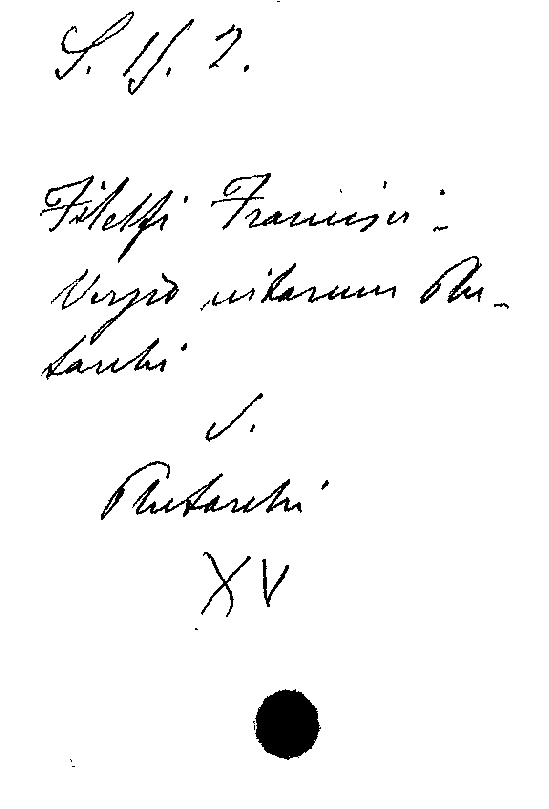 S. II. 2.
Filelfi Francisci -
Versio vitarum Plu-
tarchi
v.
Plutarchi
XV